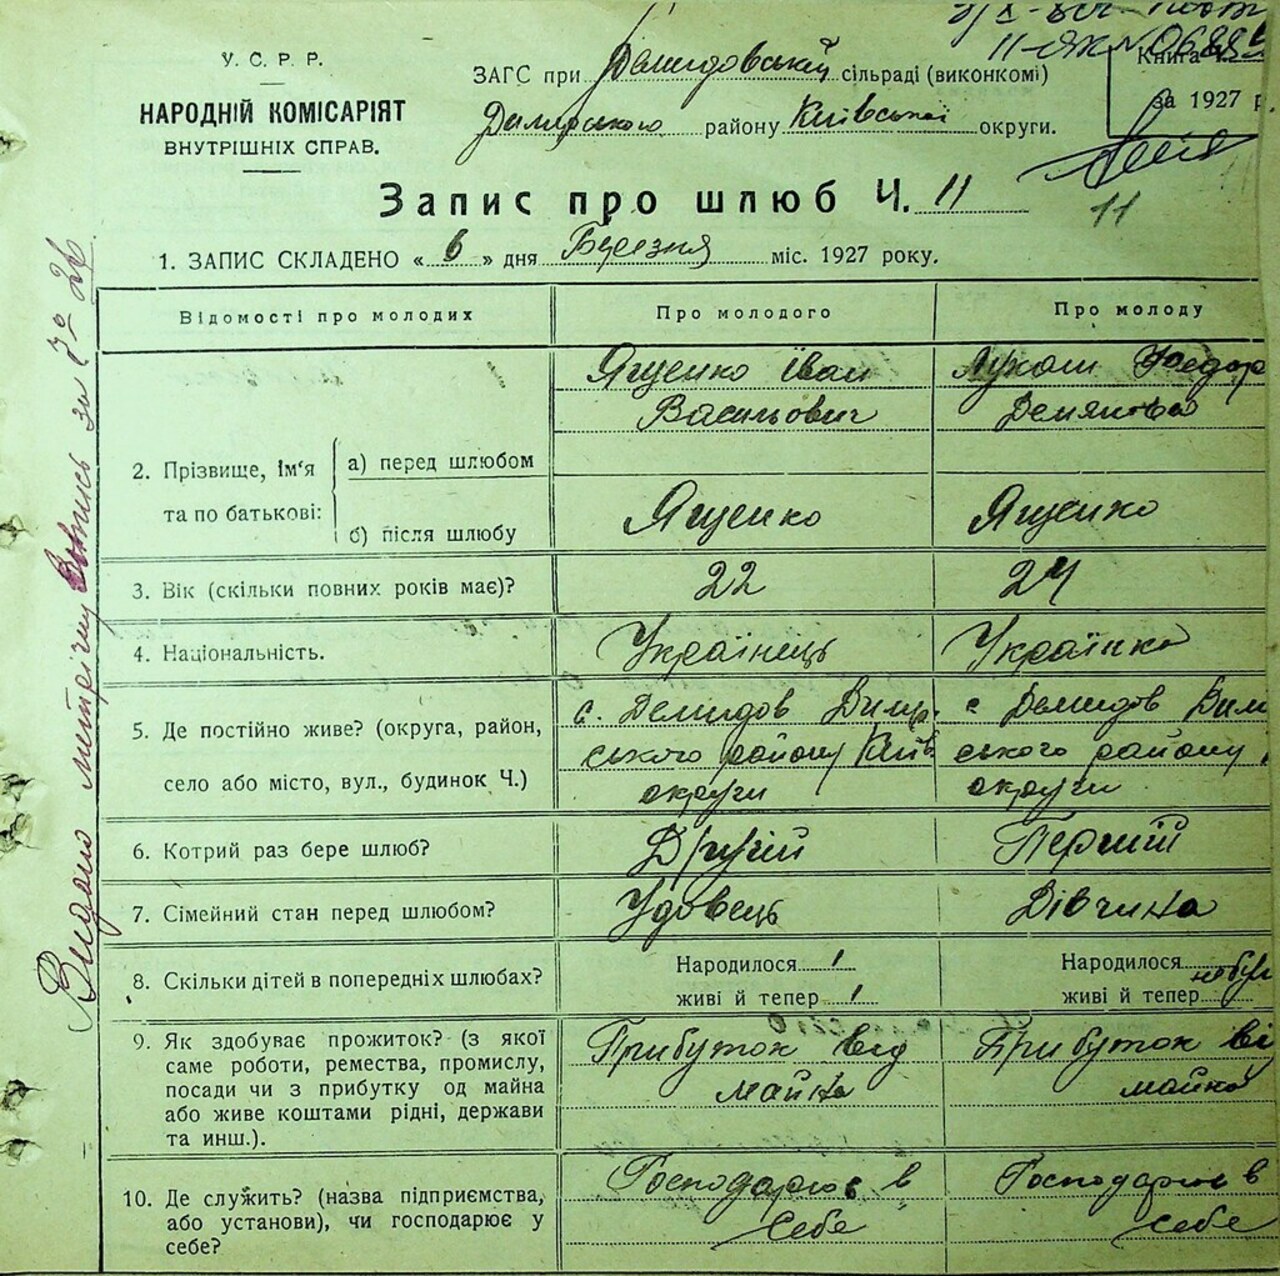 У. С. Р. Р.
НАРОДНІЙ КОМІСАРІЯТ
ВНУТРІШНІХ СПРАВ.
ЗАГС при Демидовський сільраді (виконкомі)
Димерського району Київської округи.
Книга
за 1927 р.
Запис про шлюб Ч. 11
11
1. ЗАПИС СКЛАДЕНО « 6 » дня Березня міс. 1927 року.
Відомості про молодих
Про молодого
Про молоду
2. Прізвище, ім'я
та по батькові:
а) перед шлюбом
Ященко Іван
Васильович
Лукаш Федор
Демянова
б) після шлюбу
Ященко
Ященко
3. Вік (скільки повних років має)?
22
24
4. Національність.
Українець
Українка
5. Де постійно живе? (округа, район,
село або місто, вул., будинок Ч.)
с. Демидов Димр.
ського району Київ
округи
с Демидов Дим
ського району
округи
6. Котрий раз бере шлюб?
Другий
Перший
7. Сімейний стан перед шлюбом?
Удовець
Дівчина
8. Скільки дітей в попередніх шлюбах?
Народилося 1
живі й тепер 1
Народилося
живі й тепер
небул
9. Як здобуває прожиток? (з якої
саме роботи, ремества, промислу,
посади чи з прибутку од майна
або живе коштами рідні, держави
та инш.).
Прибуток від
майна
Прибуток ві
майна
10. Де служить? (назва підприємства,
або установи), чи господарює у
себе?
Господарює в
себе
Господарює в
себе
Видано метрічну за